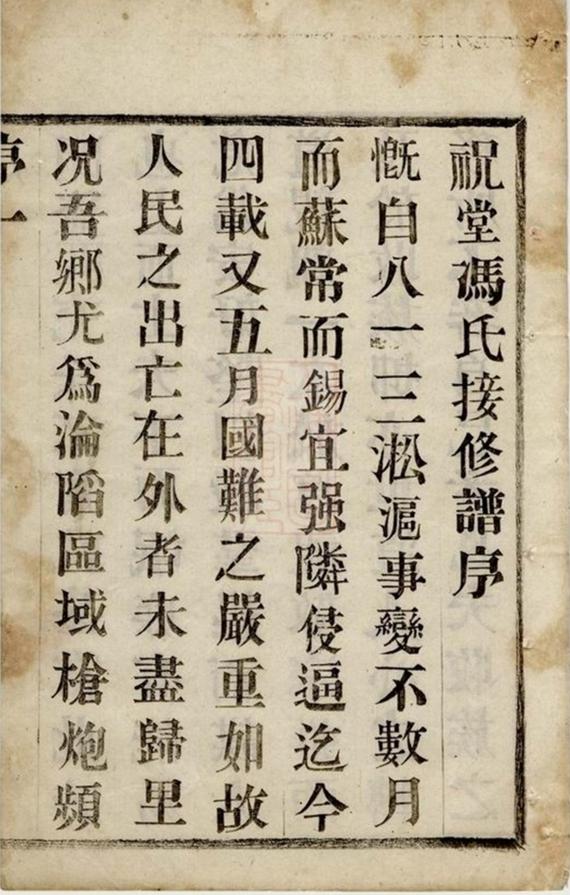 祝堂馮氏接修譜序
慨自八一三淞滬事變不數月
而蘇常而錫宜强隣侵逼迄今
四載又五月國難之嚴重如故
人民之出亡在外者未盡歸里
況吾鄉尤爲淪陷區域槍炮頻
序一